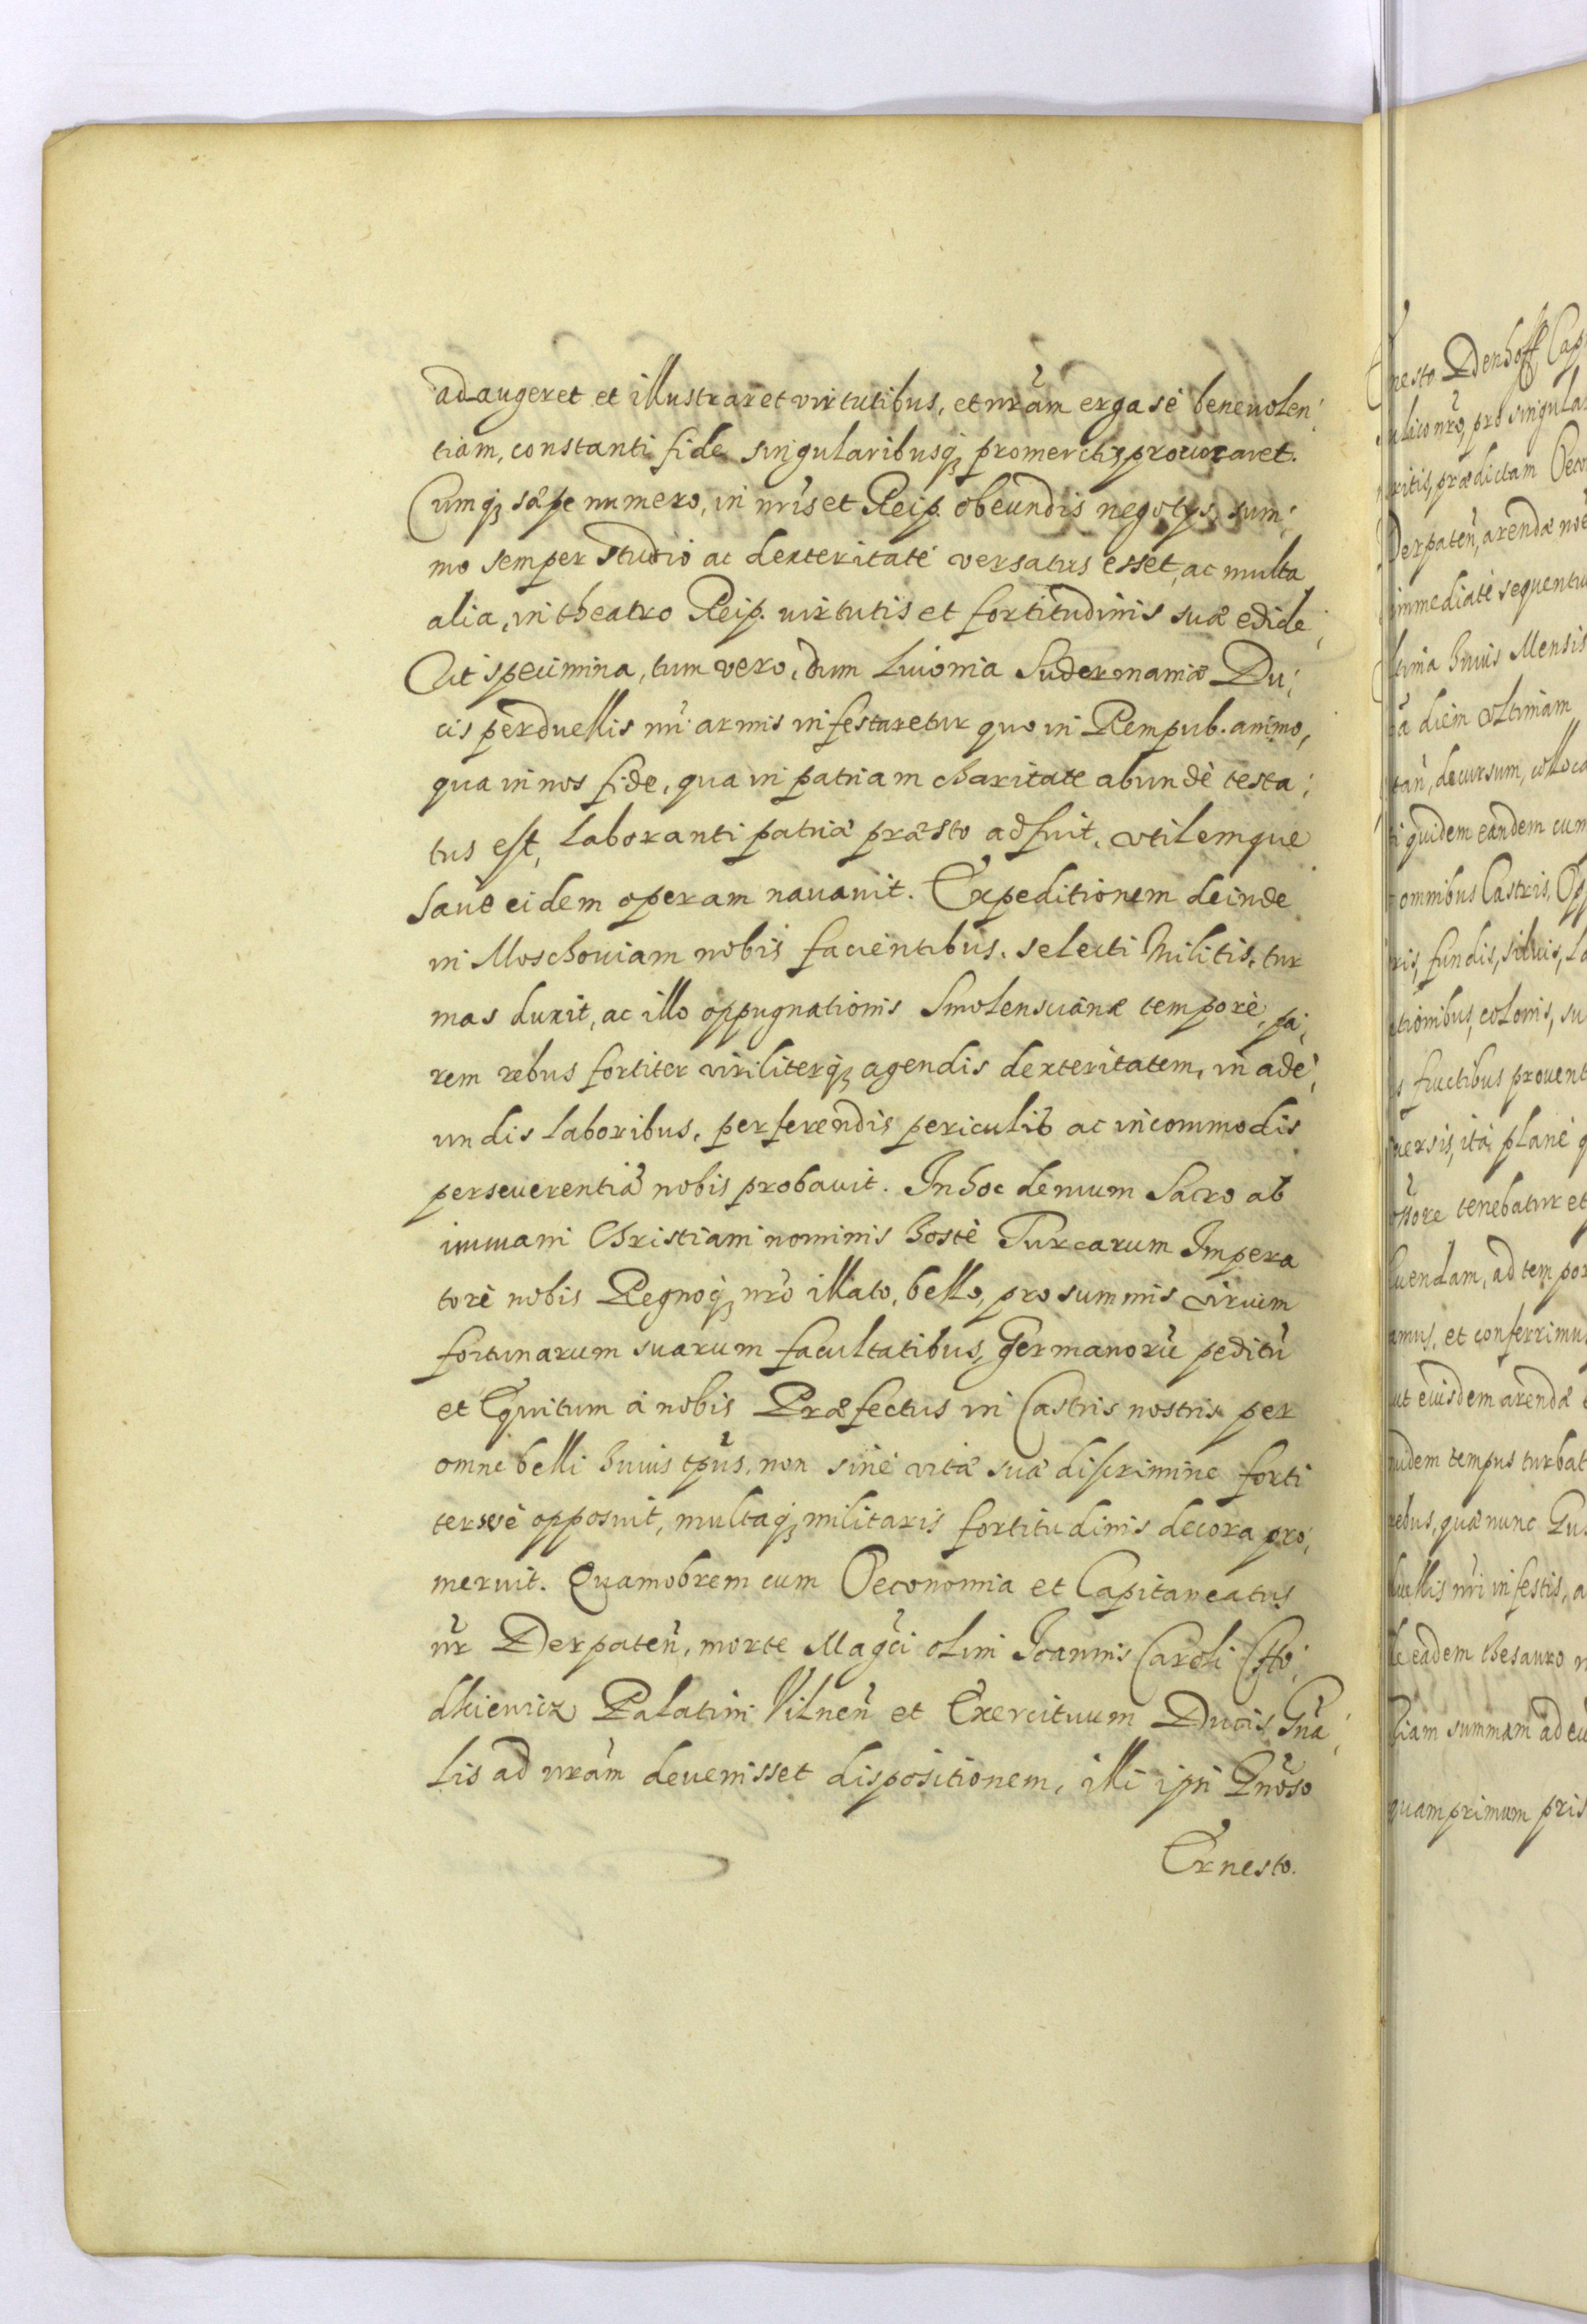 adaugeret et illustraret virtutibus, et nr̃am erga sè beneuolen:
tiam, constanti fide singularibusq; promeritis prouocaret.
Cumq; sæpe numero, in nr̃is et Reip. obeundis negotys, sum:
mo semper studio ac dexteritate versatus esset, ac multa
alia, in theatro Reip. uirtutis et fortitudinis suæ edide:
rit specimina, tum vero, dum Liuonia Sudermaniæ Du:
cis perduellis nr̃i armis infestaretur quo in Rempub. animo,
qua in nos fide, qua in patriam charitate abundè testa:
tus est, laboranti patriæ præsto adfuit, vtilemque
sanè eidem operam nauauit. Expeditionem deinde
in Moschouiam nobis facientibus, selecti Militis, tur
mas duxit, ac illo oppugnationis Smolenscanæ temporè, pa:
rem rebus fortiter viriliterq; agendis dexteritatem, in ade:
undis laboribus, perferendis periculis ac incommodis
perseuerentiã nobis probauit. In hoc demum Sacro ab
immani Christiani nominis hostè Turcarum Impera
torè nobis Regnoq; nr̃o illato, bello, pro summis virium
fortunarum suarum facultatibus, Germanorũ peditũ
et Equitum à nobis Præfectus in Castris nostris per
omne belli huius tp̃us, non sinè vitæ suæ discrimine forti
ter sesè opposuit, multaq; militaris fortitudinis decora pro:
meruit. Quamobrem cum Oeconomia et Capitaneatus
nr̃ Derpateñ, morte Mag̃ci olim Joannis Caroli Cho:
dkiewicz Palatini Vilneñ et Exercituum Ducis Gñа:
lis ad nr̃am deuenisset dispositionem, illi ipsi Gñoso
Ernesto.
nesto Denhoff Cap
ulico nr̃o, pro singula
ritis, prædictam Oeco
Derpateñ, arendæ no
immediatè sequentu
tima huius Mensis
diem vltimam
decursum, colloca
quidem eandem cum
omnibus Castris, Op
ris, fundis, siluis, la
tionibus, colonis, su
fructibus prouent
uersis, ità planè q
ore tenebatur et
uendam, ad tempor
amus, et conferrimus
ut eiusdem arendæ
udem tempus turbat
rebus, quæ nunc Gu
duellis nr̃i infestis, a
eadem thesauro n
tiam summam ad eu
quamprimum pris